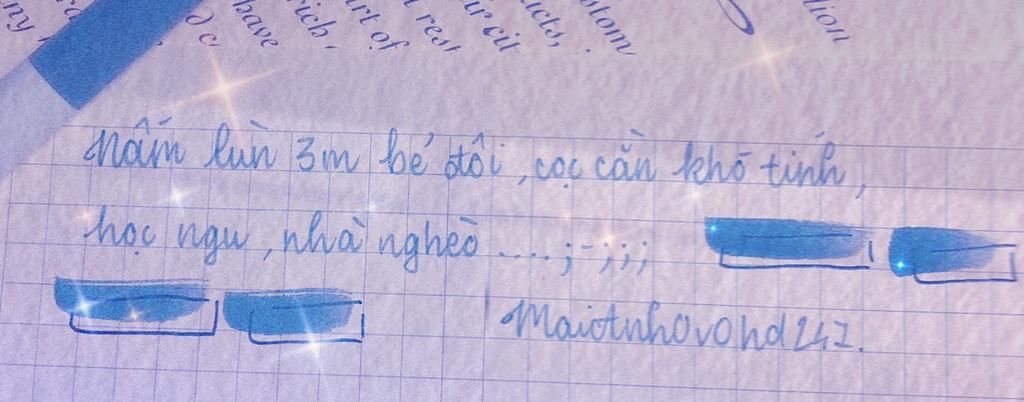 have
rich,
art of
rest
ucts,
stom
lion
nấm lùn 3m bẻ đôi, cọc cằn khó tính,
học ngu, nhà nghèo ....;-;;;
MaiAnh0v0hd247.